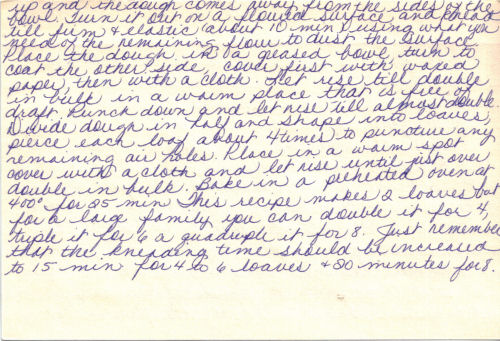 up and the dough comes away from the sides of the
bowl. Turn it out on a floured surface and knead
till firm & elastic (about 10 min) using what you
need of the remaining flour to dust the surface.
Place the dough in a greased bowl, turn to
coat the other side, cover first with waxed
paper, then with a cloth. Let rise till double
in bulk in a warm place that is free of
draft. Punch down and let rise till almost double.
Divide dough in half and shape into loaves,
pierce each loaf about 4 times to puncture any
remaining air holes. Place in a warm spot
cover with a cloth and let rise until just over
double in bulk. Bake in a preheated oven at
400° for 25 min This recipe makes 2 loaves but
for a large family you can double it for 4,
triple it for 6 a quadruple it for 8. Just remember
that the kneading time should be increased
to 15 min for 4 to 6 loaves + 20 minutes for 8.